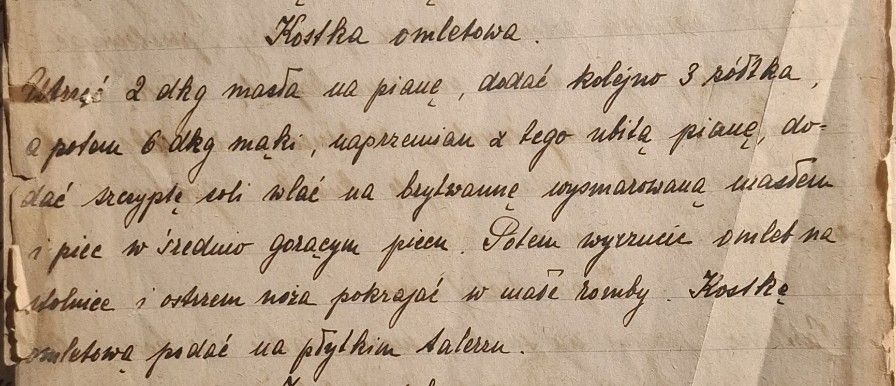 Kostka omletowa.
Utrzeć 2 dkg masła na pianę, dodać kolejno 3 żółtka,
a potem 6 dkg mąki, naprzemian z tego ubitą pianę, do=
dać szczyptę soli wlać na brytwannę wysmarowaną masłem
i piec w średnio gorącym piecu. Potem wyrzucić omlet na
stolnicę i ostrzem noża pokrajać w małe romby. Kostkę
omletową podać na płytkim talerzu.